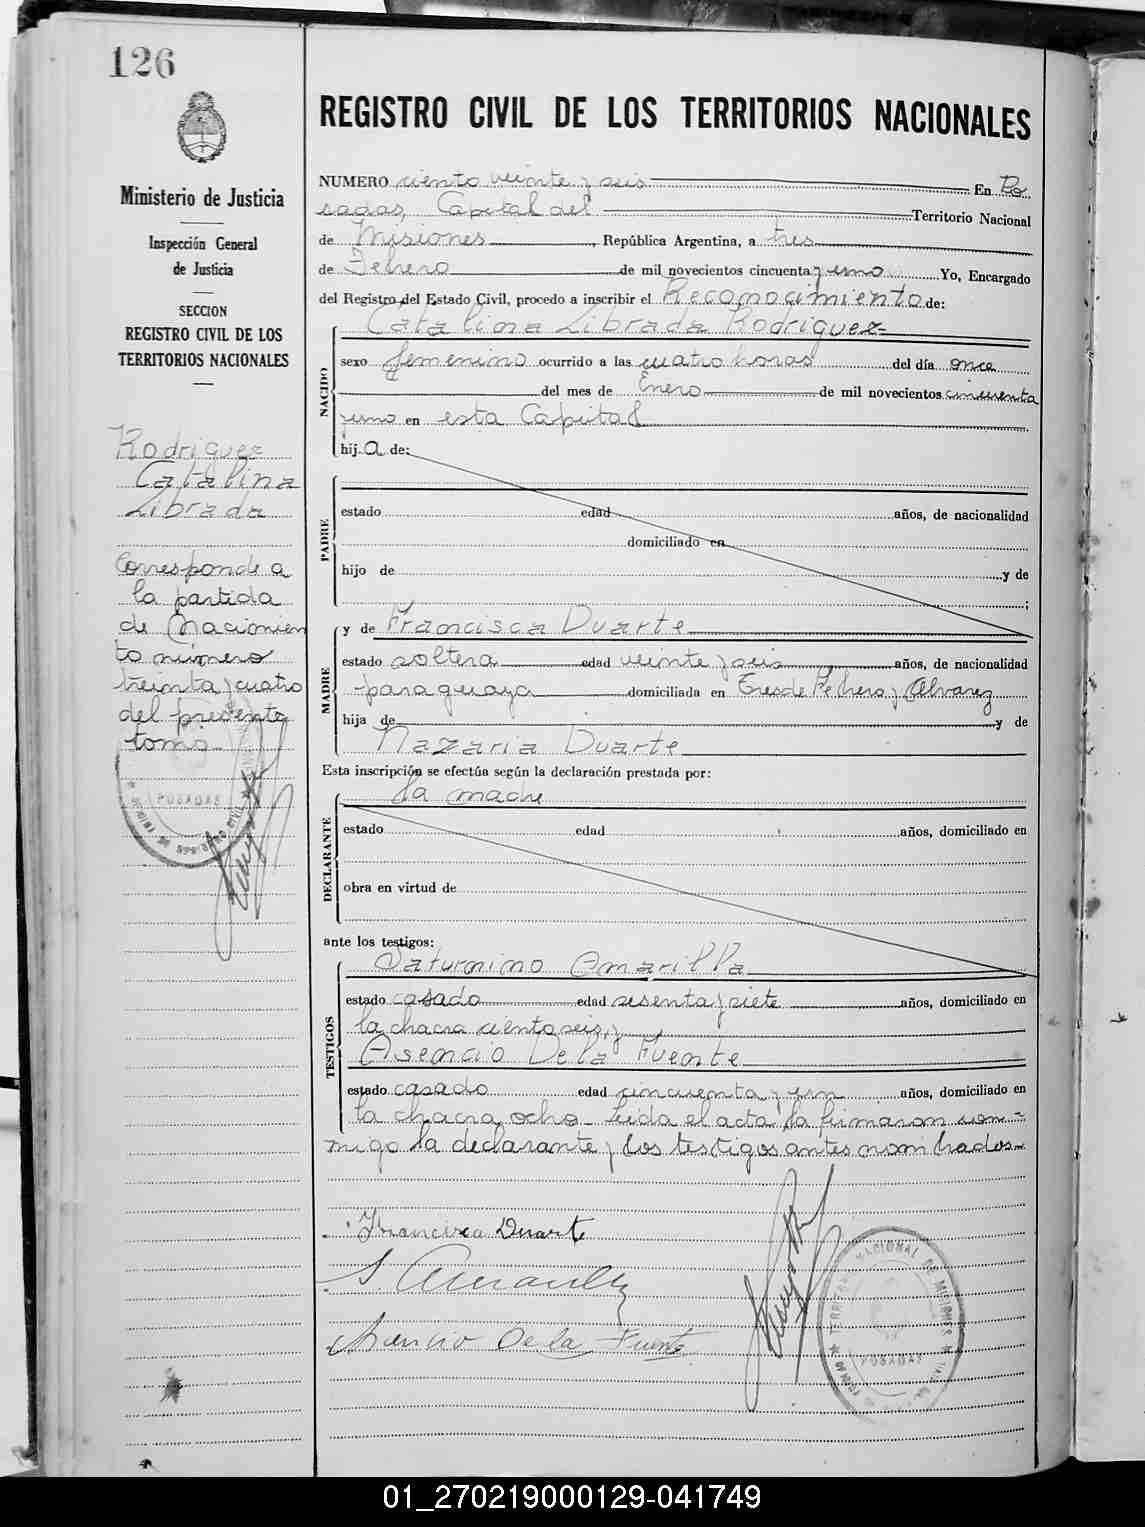 126
Ministerio de Justicia
Inspección General
de Justicia
SECCION
REGISTRO CIVIL DE LOS
TERRITORIOS NACIONALES
Rodriguez
Catalina
Librada
Corresponde a
la partida
de Nacimien
to número
treinta y cuatro
del presente
tomo
POSADAS
REGISTRO CIVIL DE LOS TERRITORIOS NACIONALES
NUMERO ciento veinte y seis En Po
sadas, Capital del Territorio Nacional
de Misiones, República Argentina, a tres
de Febrero de mil novecientos cincuenta y uno Yo, Encargado
del Registro del Estado Civil, procedo a inscribir el Reconocimiento de:
NACIDO
Catalina Librada Rodriguez
sexo femenino ocurrido a las cuatro horas del día once
del mes de Enero de mil novecientos cincuenta
y uno en esta Capital
hij a de:
PADRE
estado edad años, de nacionalidad
domiciliado en
hijo de y de
;
MADRE
y de Francisca Duarte
estado soltera edad veinte y seis años, de nacionalidad
paraguaya domiciliada en Tres de Febrero y Alvarez
hija de y de
Nazaria Duarte
Esta inscripción se efectúa según la declaración prestada por:
DECLARANTE
la madre
estado edad años, domiciliado en
obra en virtud de
ante los testigos:
TESTIGOS
Saturnino Amarilla
estado casado edad sesenta y siete años, domiciliado en
la chacra ciento seis, y
Asencio De la Fuente
estado casado edad cincuenta y un años, domiciliado en
la chacra ocho. Leida el acta, la firmaron con-
migo la declarante y los testigos antes nombrados.
Francisca Duarte
S. Amarilla
Asencio De la Fuente
TERRITORIO NACIONAL DE MISIONES
POSADAS
01_270219000129-041749